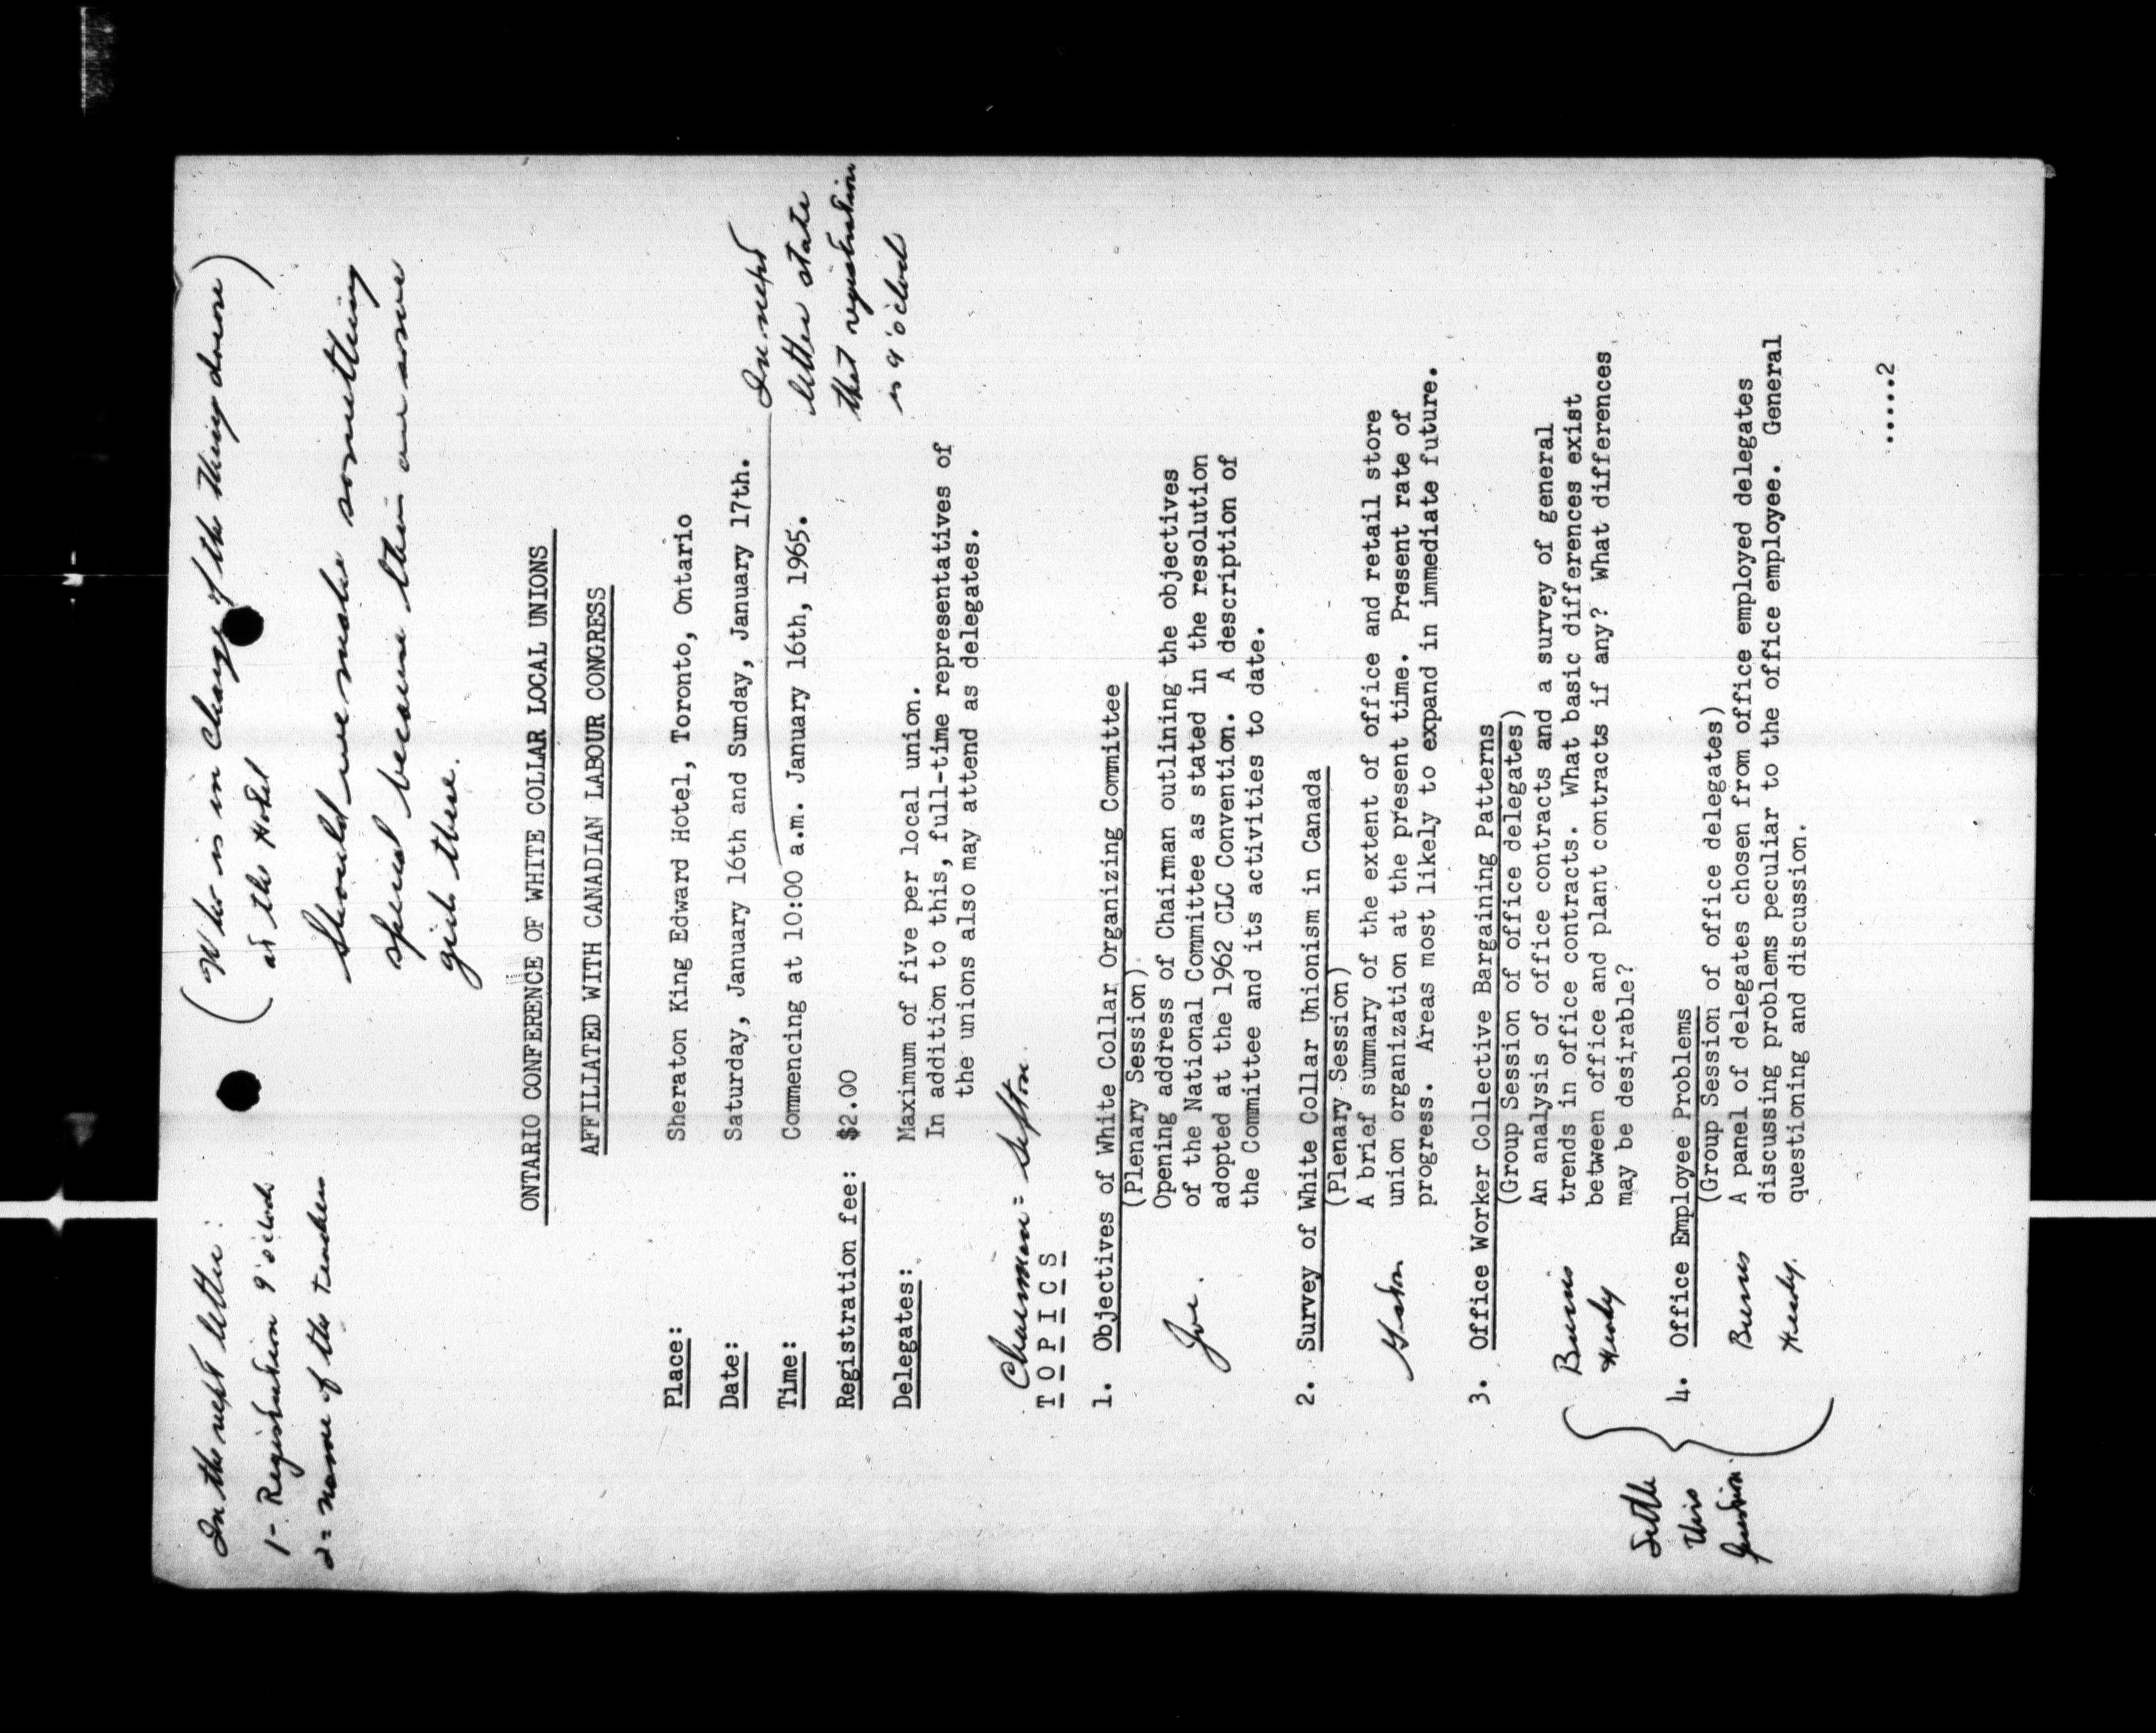 In the next letter:
1- Registration 9 o'clock
2= name of the teachers
(Who is in Charge of the thing down
at the Hotel)
Should we make something
special because their are some
girls there.
ONTARIO CONFERENCE OF WHITE COLLAR LOCAL UNIONS
AFFILIATED WITH CANADIAN LABOUR CONGRESS
Place: Sheraton King Edward Hotel, Toronto, Ontario
Date: Saturday, January 16th and Sunday, January 17th.
Time: Commencing at 10:00 a.m. January 16th, 1965.
In next
letter state
that registration
is 9 o'clock
Registration fee: $2.00
Delegates: Maximum of five per local union.
In addition to this, full-time representatives of
the unions also may attend as delegates.
Chairman = Sefton
TOPICS
1. Objectives of White Collar Organizing Committee
(Plenary Session)
Joe.
Opening address of Chairman outlining the objectives
of the National Committee as stated in the resolution
adopted at the 1962 CLC Convention. A description of
the Committee and its activities to date.
2. Survey of White Collar Unionism in Canada
(Plenary Session)
A brief summary of the extent of office and retail store
union organization at the present time. Present rate of
progress. Areas most likely to expand in immediate future.
3. Office Worker Collective Bargaining Patterns
(Group Session of office delegates)
Burns
An analysis of office contracts and a survey of general
trends in office contracts. What basic differences exist
between office and plant contracts if any? What differences
may be desirable?
Settle
this
question
4. Office Employee Problems
(Group Session of office delegates)
Burns
A panel of delegates chosen from office employed delegates
discussing problems peculiar to the office employee. General
questioning and discussion.
......2